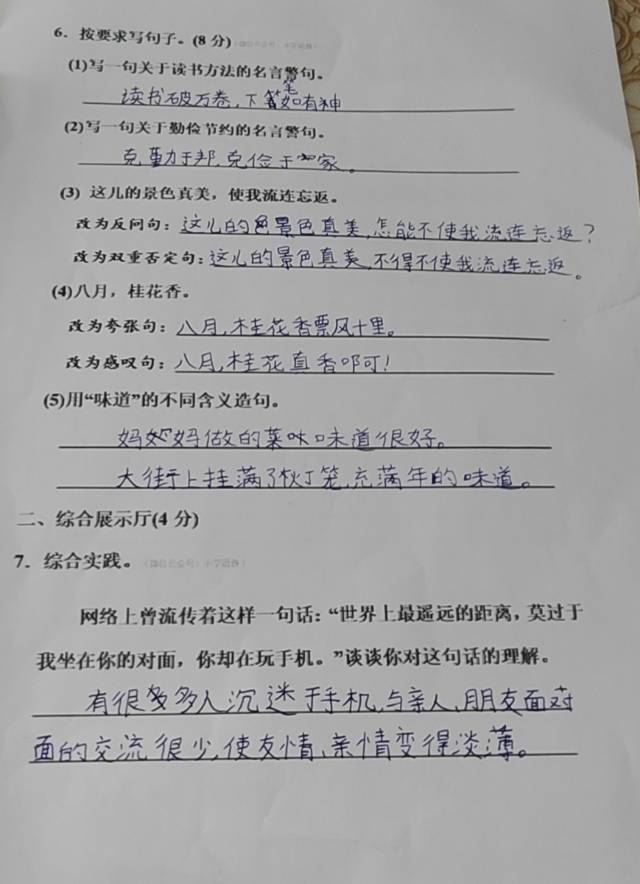 6. 按要求写句子。(8 分)
(1)写一句关于读书方法的名言警句。
读书破万卷,下笔如有神
(2)写一句关于勤俭节约的名言警句。
克勤于邦,克俭于家。
(3) 这儿的景色真美，使我流连忘返。
改为反问句：这儿的景色真美,怎能不使我流连忘返？
改为双重否定句：这儿的景色真美,不得不使我流连忘返。
(4)八月，桂花香。
改为夸张句：八月,桂花香飘十里。
改为感叹句：八月,桂花真香啊!
(5)用“味道”的不同含义造句。
妈妈做的菜味道很好。
大街上挂满了灯笼,充满年的味道。
二、综合展示厅(4 分)
7. 综合实践。
网络上曾流传着这样一句话：“世界上最遥远的距离，莫过于
我坐在你的对面，你却在玩手机。”谈谈你对这句话的理解。
有很多人沉迷于手机,与亲人、朋友面对
面的交流很少,使友情、亲情变得淡薄。